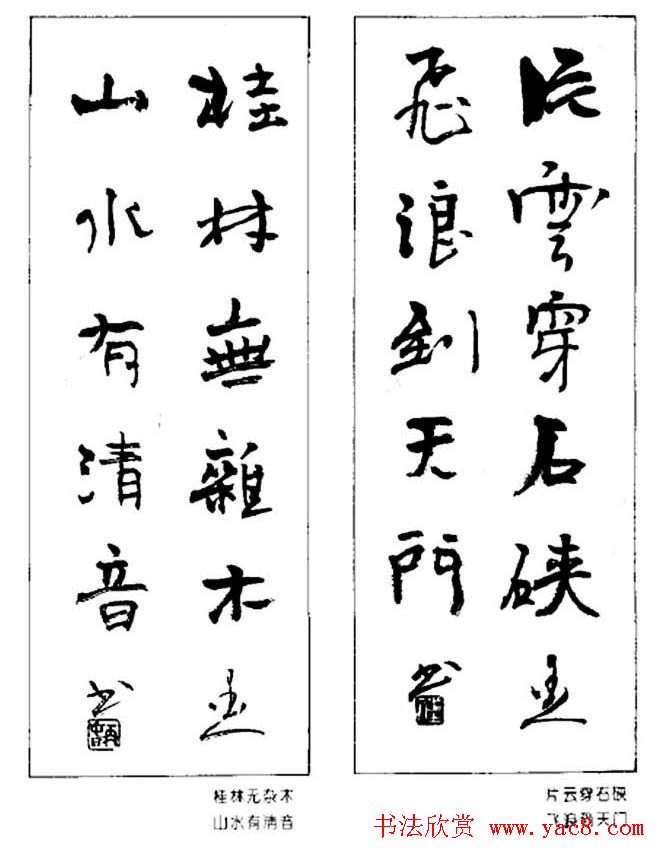 片雲穿石硤
飛浪到天門書
桂林無雜木
山水有清音書
片云穿石硖
飞浪到天门
桂林无杂木
山水有清音
书法欣赏 www.yac8.com